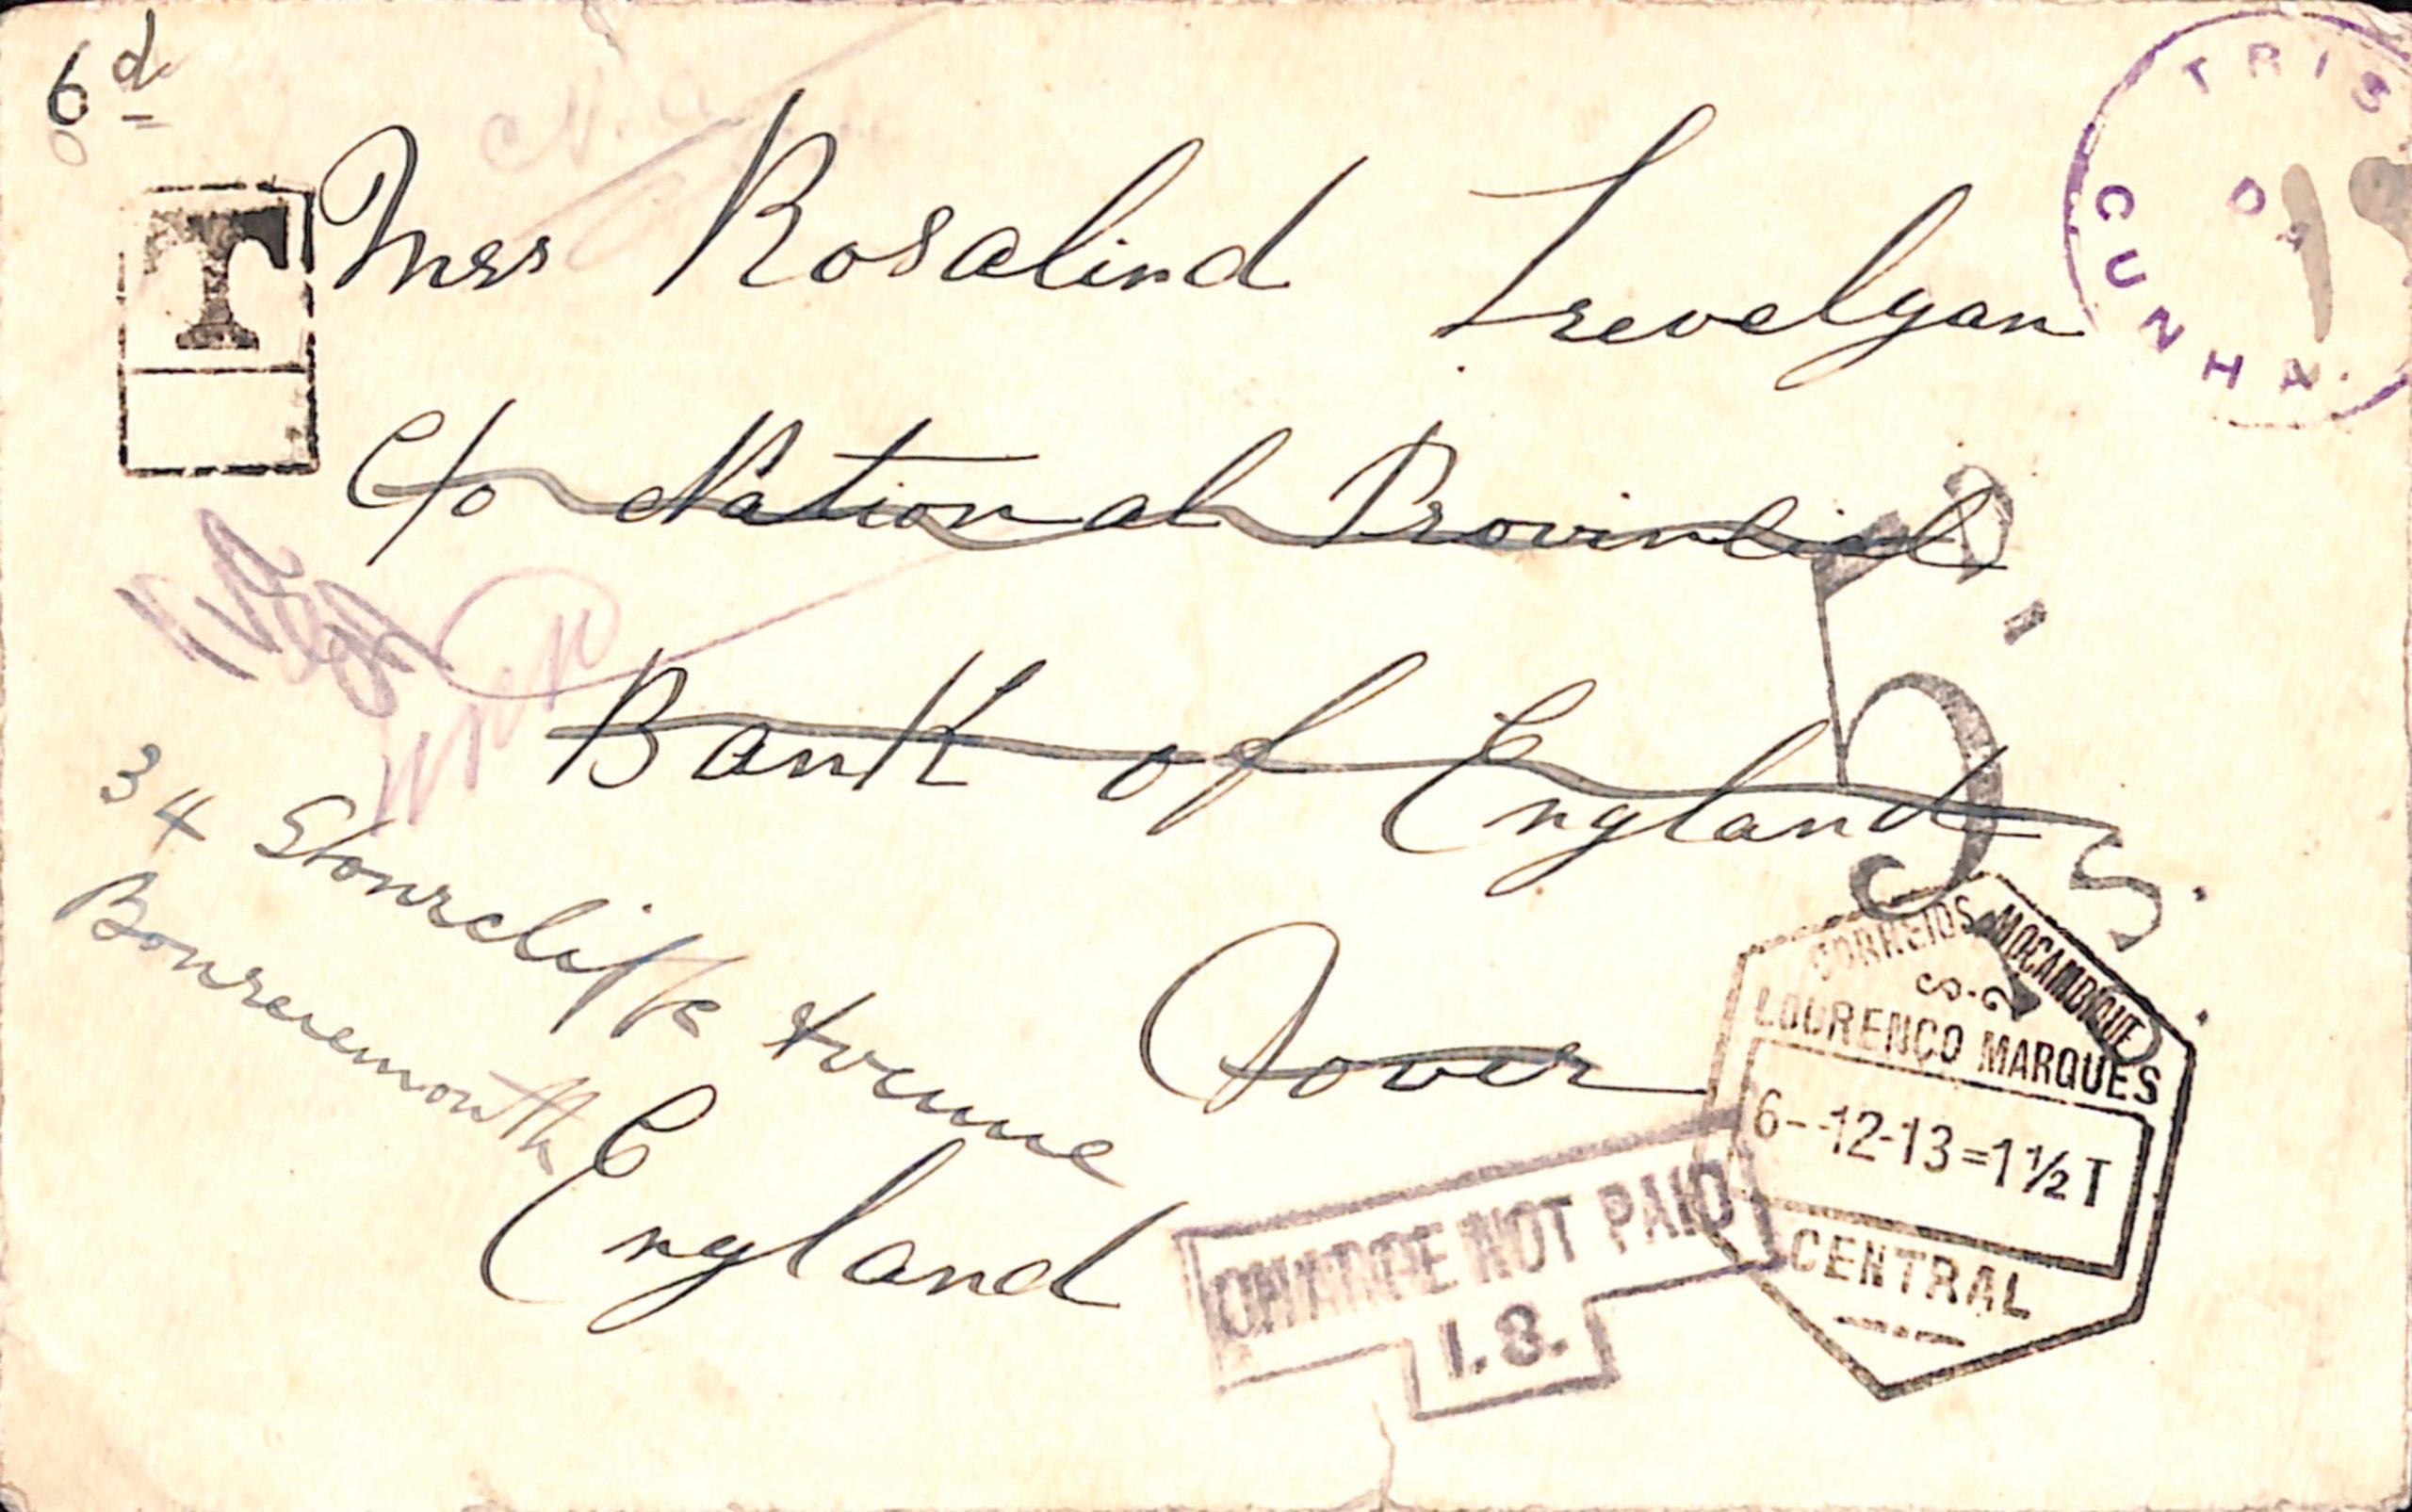 6d
T
TRIS
DA
CUNHA
Mrs Rosalind Trevelyan
C/o National Provincial
Bank of England
Dover
England
34 Stonecliffe Avenue
Bournemouth
5
CORREIOS MOÇAMBIQUE
S-2
LOURENÇO MARQUES
6--12-13=1½T
CENTRAL
CHARGE NOT PAID
I.S.